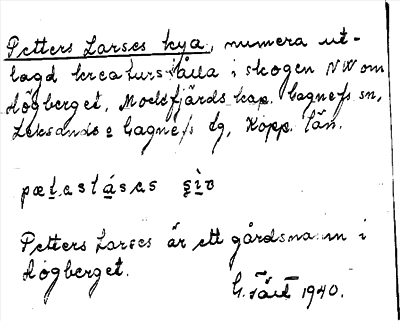 Petters Larses kya, numera ut-
lagd kreatursfålla i skogen NW om
Högberget, Mockfjärds kap. Gagnefs sn,
Leksands o Gagnefs tg, Kopp. län.
Petters Larses är ett gårdsnamn i
Högberget.
G. 1940.